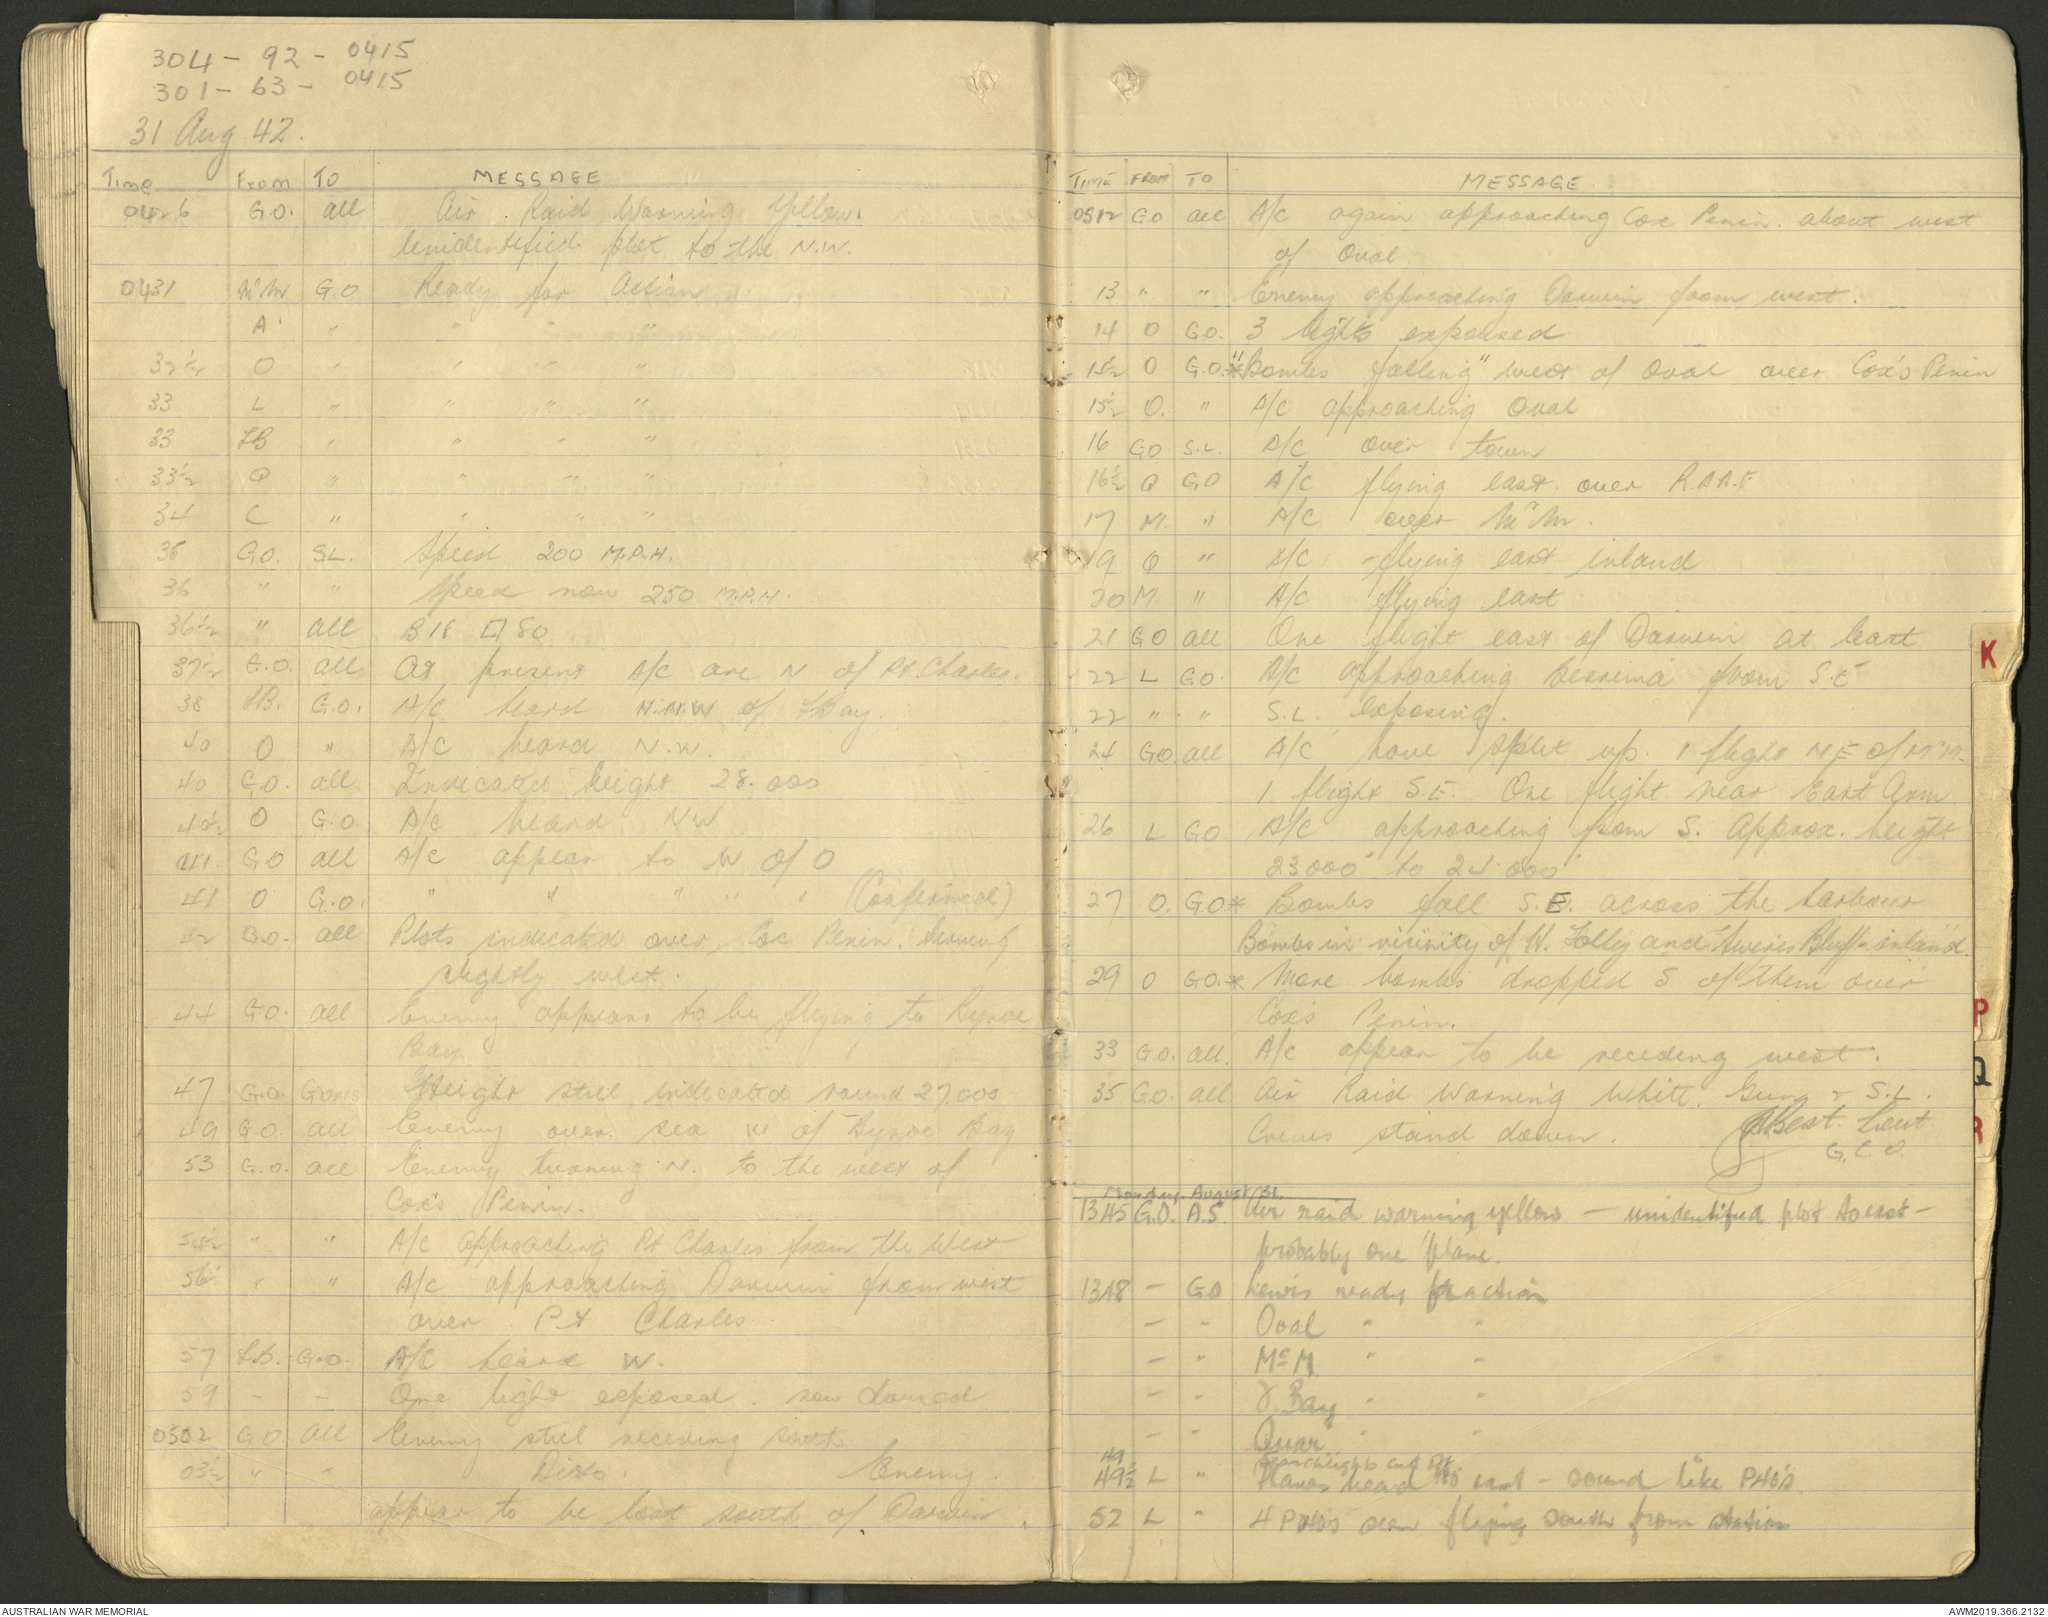 304 - 92 - 0415
301 - 63 - 0415
31 Aug 42.
Time From To MESSAGE
0426 G.O. all Air Raid Warning Yellow.
Unidentified plot to the N.W.
0431 McM G.O Ready for Action
A " " " "
32½ O " " " "
33 L " " " "
33 FB " " " "
33½ Q " " " "
34 C " " " "
35 G.O. SL. Speed 200 M.P.H.
36 " " Speed now 250 M.P.H.
36½ " all B18 80
37½ G.O. all At present A/c are N of Pt Charles.
38 FB. G.O. A/c heard N.N.W of FBay.
40 O " A/c heard N.W.
40 G.O. all Indicated height 28.000
40½ O G.O A/c heard NW
41 GO all A/c appear to W of O
41 O G.O. " " " " " (Confirmed)
42 G.O. all Plots indicated over Cox Penin. turning
slightly west.
44 GO. all Enemy appears to be flying to Bynoe
Bay
47 G.O. Guns Height still indicated round 27000
49 G.O. all Enemy over sea W of Bynoe Bay
53 G.O. all Enemy turning N. to the west of
Cox's Penin.
54½ " " A/c approaching Pt Charles from the West
56 " " A/c approaching Darwin from west
over Pt Charles
57 FB. G.O. A/c heard W.
59 - - One light exposed. now doused
0502 GO. all Enemy still receding south
03½ " " Ditto. Enemy.
appear to be lost south of Darwin.
TIME FROM TO MESSAGE
0512 GO all A/c again approaching Cox Penin. about west
of Oval
13 " " Enemy approaching Darwin from west.
14 O G.O. 3 lights exposed
15½ O G.O. * "Bombs falling" west of Oval over Cox's Penin
15½ O. " A/c approaching Oval
16 GO S.L. A/c over town
16½ Q GO A/c flying east over R.A.A.F
17 M. " A/c over McM.
19 Q " A/c flying east inland
20 M. " A/c flying east
21 GO all One flight east of Darwin at least
22 L GO. A/c approaching Berrima from S.E
22 " " S.L. Exposing.
24 GO all A/c have split up. 1 flight N.E of McM.
1 flight S.E. One flight near East Arm
26 L. GO A/c approaching from S. Approx. height
23000' to 24.000'
27 O. GO * Bombs fall S.E. across the harbour
Bombs in vicinity of W. Folly and Bluff - inland.
29 O GO. * More bombs dropped S of them over
Cox's Penin.
33 G.O. all. A/c appear to be receding west.
35 G.O. all Air Raid Warning White. Guns & S.L.
Crews stand down. Best. Lieut
G.C.O.
Monday. August 31.
1345 G.O. A.S. Air raid warning yellow - unidentified plot to east -
probably one plane.
1348 - GO Lewis ready for action
- " Oval " "
- " McM " "
- " F. Bay " "
- " Quar " "
49 Searchlights
49½ L " Planes heard to east - sound like P40's.
52 L " 4 P40's seen flying south from station
K
P
Q
R
AUSTRALIAN WAR MEMORIAL
AWM2019.366.2132